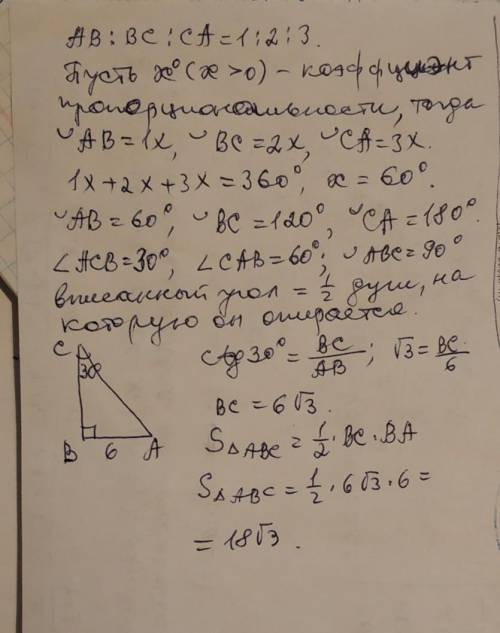 AB : BC : CA = 1 : 2 : 3.
Пусть x° (x > 0) – коэффициент
пропорциональности, тогда
◡AB = 1x, ◡BC = 2x, ◡CA = 3x.
1x + 2x + 3x = 360°, x = 60°.
◡AB = 60°, ◡BC = 120°, ◡CA = 180°.
∠ACB = 30°, ∠CAB = 60°; ◡ABC = 90°
вписанный угол = 1/2 дуги, на
которую он опирается.
C
30°
B 6 A
ctg 30° = BC/AB ; √3 = BC/6
BC = 6√3.
S△ABC = 1/2 · BC · BA
S△ABC = 1/2 · 6√3 · 6 =
= 18√3.